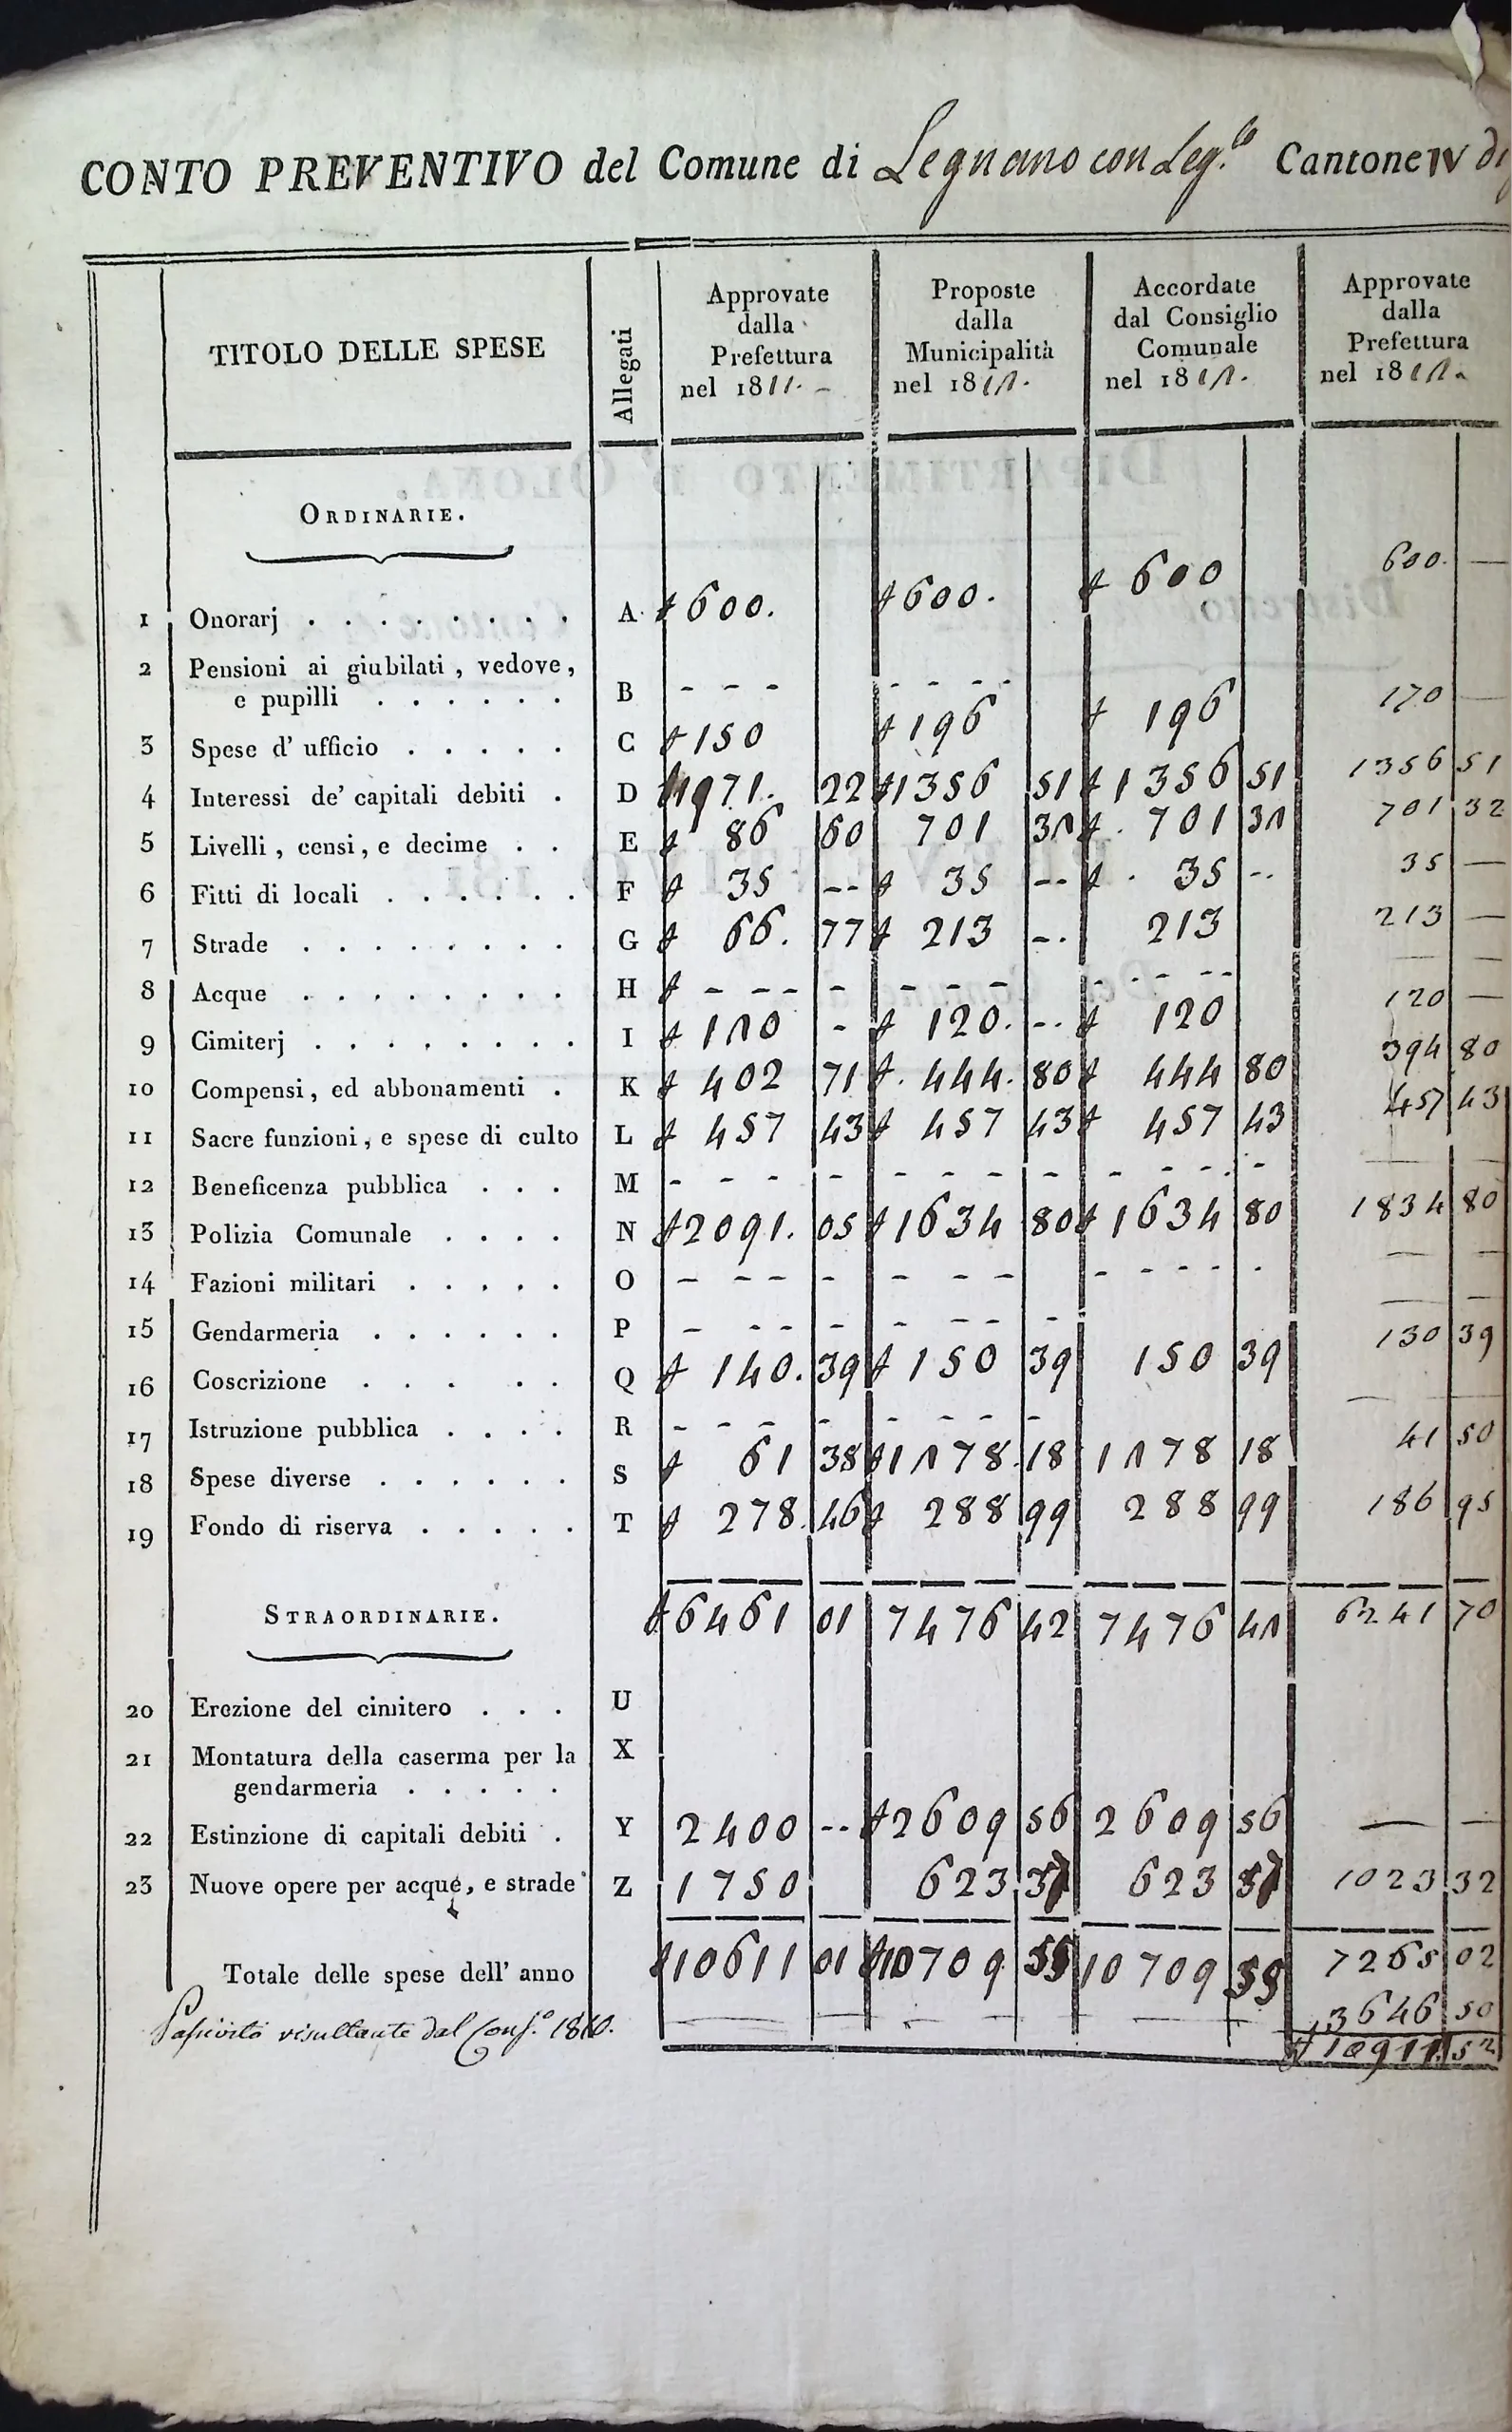 CONTO PREVENTIVO del Comune di Legnano con Leg.lo Cantone IV di
TITOLO DELLE SPESE
Allegati
Approvate dalla Prefettura nel 1811. -
Proposte dalla Municipalità nel 1812.
Accordate dal Consiglio Comunale nel 1812.
Approvate dalla Prefettura nel 1812.
ORDINARIE.
1 Onorarj . . . . . . . . A. 600. 600. 600 600. —
2 Pensioni ai giubilati, vedove,
e pupilli . . . . . . B - - - - - - -
3 Spese d' ufficio . . . . . C 150 196 196 170 —
4 Interessi de' capitali debiti . D 1971. 22 1356 51 1356 51 1356 51
5 Livelli, censi, e decime . . E 86 60 701 32 701 32 701 32
6 Fitti di locali . . . . . . F 35 -- 35 -- 35 -- 35 —
7 Strade . . . . . . . . G 66. 77 213 -- 213 213 —
8 Acque . . . . . . . . H - - - - - - - - - - - - — —
9 Cimiterj . . . . . . . . I 120 - 120. -- 120 120 —
10 Compensi, ed abbonamenti . K 402 71 444. 80 444 80 394 80
11 Sacre funzioni, e spese di culto L 457 43 457 43 457 43 457 43
12 Beneficenza pubblica . . . M - - - - - - - - - - - - — —
13 Polizia Comunale . . . . N 2091. 05 1634 80 1634 80 1834 80
14 Fazioni militari . . . . . O - - - - - - - - - - - - — —
15 Gendarmeria . . . . . . P - - - - - - - - — —
16 Coscrizione . . . . . Q 140. 39 150 39 150 39 130 39
17 Istruzione pubblica . . . . R - - - - - - - - — —
18 Spese diverse . . . . . . S 61 38 1278. 18 1278 18 41 50
19 Fondo di riserva . . . . . T 278. 46 288 99 288 99 186 95
6461 01 7476 42 7476 42 6241 70
STRAORDINARIE.
20 Erezione del cimitero . . . U
21 Montatura della caserma per la X
gendarmeria . . . . .
22 Estinzione di capitali debiti . Y 2400 -- 2609 56 2609 56 — —
23 Nuove opere per acque, e strade Z 1750 623 623 1023 32
Totale delle spese dell' anno 10611 01 10709 10709 7265 02
Passività risultante dal Cons.o 1810. — — — — 3646 50
10911 52